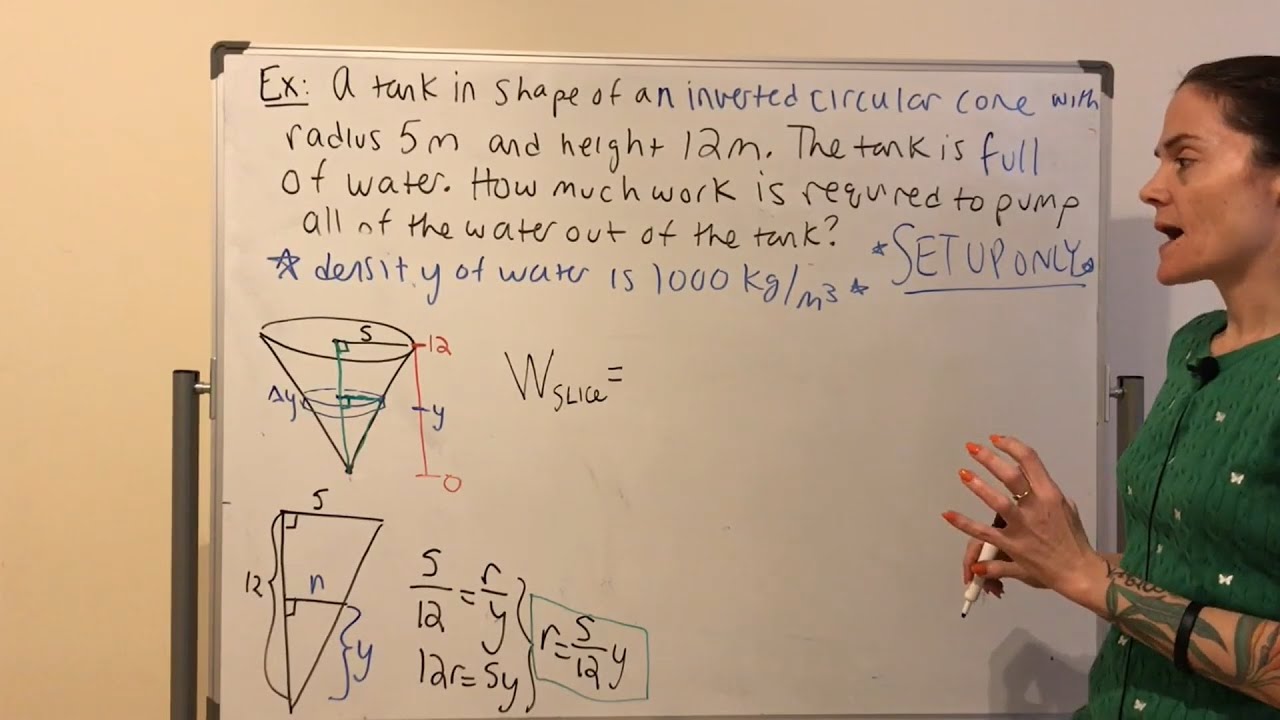 Ex: A tank in shape of an inverted circular cone with
radius 5m and height 12m. The tank is full
of water. How much work is required to pump
all of the water out of the tank?
* SET UP ONLY *
☆ density of water is 1000 kg/m³ ☆
5
12
Δy
y
0
W SLICE =
5
12
r
y
5/12 = r/y
12r = 5y
r = 5/12 y